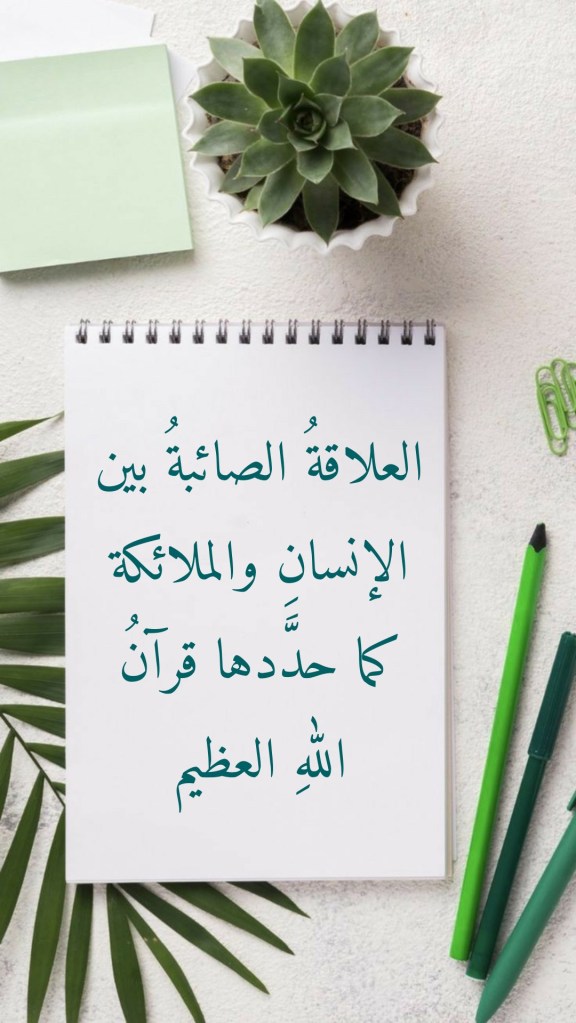 العلاقةُ الصائبةُ بين
الإنسانِ والملائكة
كما حدَّدَها قرآنُ
اللهِ العظيم